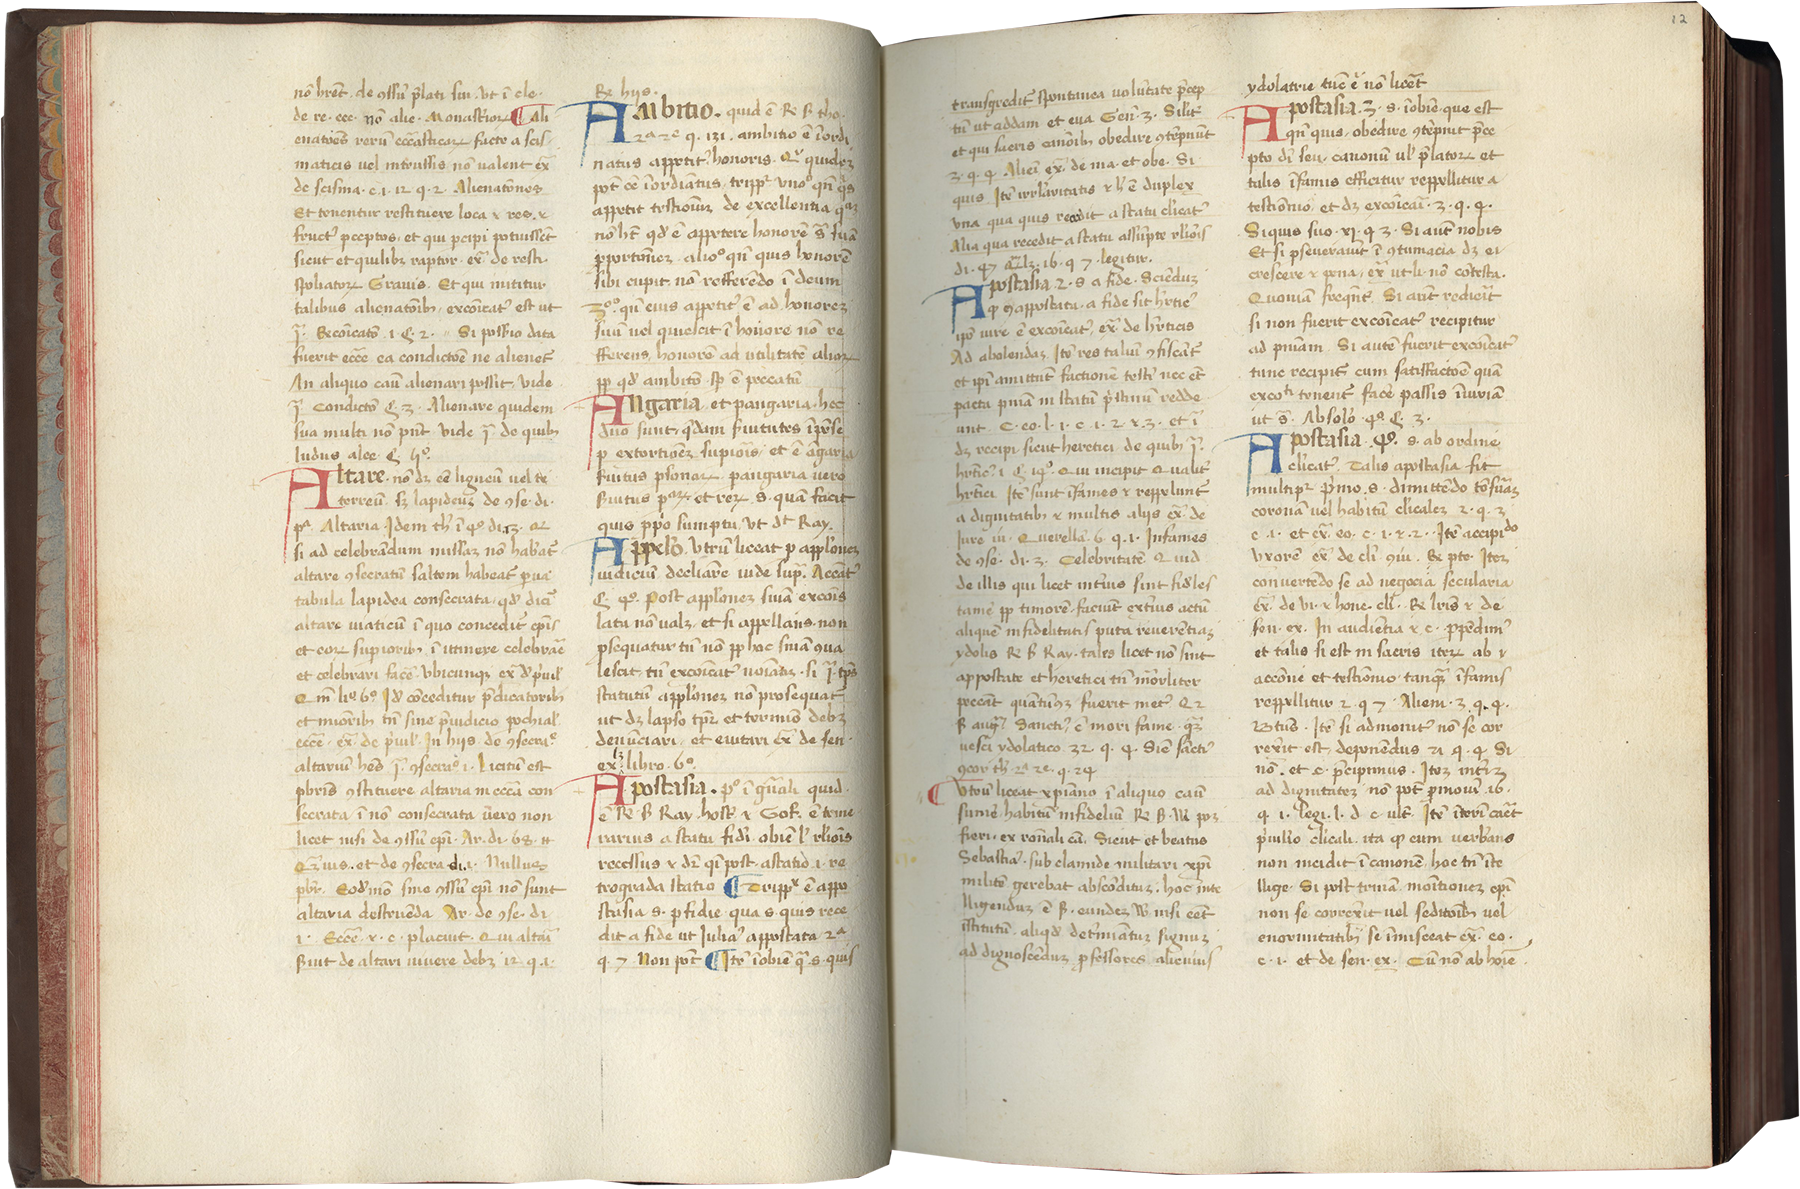 12
nō hn̄t. de ɔssu p̄lati sui. vt ī cle
de re. ecc. nō alie. Monastior ¶ Ali
enatōes rerū ecc̄asticar facte a scis
maticis vel intrussis nō valent ex̄
de scisma. c. 1. 12 q. 2. Alienatōnes
Et tenentur restituere loca ⁊ res. ⁊
fruct' p̄ceptos, et qui p̄cipi potuissēt
sicut et quilibz raptor. ex̄ de resti.
spoliator Grauis. Et qui mititur
talibus alienatōib, excōicat' est ut
ī. Excōicato. 1. ₵. 2. Si possio data
fuerit ecc̄e ea condictōe ne alienet'
An aliquo casu alienari possit, vide
ī. Condictō ₵. 3. Alienare quidem
sua multi nō pn̄t vide ī. de quib
ludus alee ₵. 4°.
Altare. nō dz eē ligneū vel te
terreū. sz lapideuz de ɔse. di.
p'. Altaria. Idem th' ī 4° di. 13. Et
si ad celebrādum missaz nō habet'
altare ɔsecratū saltem habeat' p̄ua
tabula lapidea consecrata, qd' dicit'
altare viaticū ī quo concedit' ep̄is
et eor supiorib ī itinere celebrare
et celebrari facē vbicunqz ex̄ d' p̄uil'
Q m̄ li° 6° Id' cōceditur p̄dicatorib
et miorib tn̄ sine p̄iudicio pochial'
ecc̄e. ex̄. de p̄uil'. In hys. de ɔsecra°
altariū hēs ī. ɔsecra° 1. Licitū est
pbrīs ɔstituere altaria in ecc̄a con
secrata ī nō consecrata vero non
licet nisi de ɔssu ep̄i. Ar. di. 68. H
Q̄uis. et de ɔsecra di. 1. Nullus
pbr. Eod' mō sine ɔssu ep̄i nō sunt
altaria destruēda Ar. de ɔse. di
1. Ecc̄e. ⁊. c. placuit. Qui altari
ßuit de altari viuere debz 12. q. 1.
Re hys.
Ambitio. quid ē Re B tho.
2ª 2e q. 131. ambitio ē īordi
natus appetit' honoris. Qi quidez
pōt eē īordīatus, trippl'r vno° qn̄ q's
appetit testioniuz de excellentia quā
nō h̄t qd' ē appetere honorē s' suā
p̄portōnez. alio° qn̄ quis honorē
sibi cupit nō refferēdo ī deum
3°° qn̄ eius appetit' ē ad honorez
suū vel quiescit ī honore nō re
fferens honorē ad vtilitatē alior
pp qd' ambitō. sp' ē peccatū
Angaria, et pangaria. hec
duo sunt, q̄dam ßuitutes īp̄se
p extortionez supiōis, et ē āgaria
ßuitus psonar pangaria vero
ßuitus psar et rer. s. quā facit
quis pp'o sumptu, vt dt' Ray.
Appelo, Vtrū liceat p appl'onez
iudiciū decliare vide sup. Accat'
₵. 4°. Post appl'onez smā excōis
lata nō valz, et si appellans non
psequatur tn̄ nō pp hoc smā ɔua
lescit, tn̄ excōicat' noiatz. si ī. tp̄s
statutū appl'onez nō prosequat'
ut dz lapso tp̄r et termio debz
denūciari. et euitari ex̄. de sen.
ex. libro. 6°.
Apostasia. p° ī gn̄ali quid.
ē Re B Ray host' ⁊ Gof. ē teme
rarius a statu fidi' obiē l' rl'iois
recessus ⁊ dr̄ q̄i post. astatio. 1. re
trograda statio ¶ Trippl' ē apo
stasia s. pfidie qua s. quis rece
dit a fide ut Iulia' appostata 2ª
q. 7. Non pōt ¶ Itē īobiē q̄ s. quis
transgredit' spontanea volūtate p̄cep
tū ut addam et eua Gen̄. 3. Silit'
et qui sacris canōib obedire ɔtēpnūt
3. q. 4 Aliēi ex̄. de ma. et obe. Si
quis Itē irrl'aritatis ⁊ h' ē duplex
vna qua quis recedit a statu cl'icat'
Alia qua recedit a statu assūpte rl'iois
di. 47 Qualz. 16. q. 7. legitur.
Apostasia. 2. s. a fide. Sciēduz
q' appostata. a fide sit h'ticē
ipō iure ē excōicat'. ex̄. de h'ticis
Ad abolendaz. Itē res taliū ɔfiscāt'
et ipi amittūt factionē testi' nec et
pacta p̄uiā in statū p̄stinū redde
unt. C. eo. l. 1. c. 1. 2 ⁊ 3. et ī
dz recipi sicut heretici de quib ī.
h'tic' 1. ₵. 14°. Qui incipit Qualit'
h'tici. Itē sunt īfames ⁊ repellunt'
a dignitatib ⁊ multis alijs ex̄. de
Iure iu. Querellā. 6. q. 1. Infames
de ɔse. di. 3. Celebritatē Quid
de illis qui licet int'ius sint fideles
tamē pp timorē. faciūt ext'ius actū
aliquē infidelitatis puta reuerētiaz
ydolis Re B Ray. tales licet nō sint
appostate et heretici tn̄ mōrliter
peccāt quātūcz fuerit met'. Q 2
B aug'. Sancti' ē mori fame. q̄z
vesci ydolatico. 32. q. 4. Siē sāncti'
ɔcor th' 2ª 2e. q. 24
Vtrū liceat xp̄iano ī aliquo casu
sume' habitū infideliū Re B. W. pz
fieri. ex rōnali cā. Sicut et beatus
Sebastia'. sub clamide militari xp̄i
militē gerebat abscōditū. hoc inte
lligenduz ē B. eundez W. nisi eēt
īstitutū. aliqd' detmiatur signuz
ad dignoscēduz p̄fessores alicuius
ydolatrie tūc ē nō licet
Apostasia. 3. s. īobiē. que est
qn̄ quis. obedire ɔtēpnit p̄ce
pto di' seu. canonū ul' p̄lator et
talis īfamis efficitur reppellitur a
testiōnio, et dz excōicari. 3. q. 4.
Siquis suo. xi. q. 3. Si aut̄ nobis
Et si pseuerauit ī ɔtumacia dz ei
crescere ⁊ pena, ex̄. ut li. nō cōtesta.
Quoniam freqnt'. Si aut̄ redierit
si non fuerit excōicat' recipitur
ad pniam. Si autē fuerit excōicat'
tunc recipit' cum satisfactōe quā
exco'i tenent' face' passis iniuriā
ut s'. Absolo. 4° ₵. 3.
Apostasia. 4°. s. ab ordine
cl'icat'. Talis apostasia fit
multipl'r p̄mo. s. dimittēdo tōsuraz
coronā vel habitū clicalez 2. q. 3
c. 1. et ex̄. eo. c. 1. ⁊. 2. Itē accipiēdo
vxorē ex̄. de cl'i ɔiu. Ex pte. Itez
convertēdo se ad negocia secularia
ex̄. de vi. ⁊ hone. cl'i. Re lr̄is ⁊ de
sen. ex. In audiētia ⁊ c. p̄pēdim'
et talis si est in sacris itez ab
accōne et testiōnio. tanq̄ īfamis
reppellitur 2. q. 7. Alieni. 3. q. 4.
Btūs. Itē si admonit' nō se cor
rexit est, deponēdus 21. q. 4. Si
nō. et c. p̄cipimus. Itez int'iz
ad dignitatez nō pōt p̄mouī. 16.
q. 1. legi. l. d. c. ult. Itē ītori caret
p̄uil'io clicali. ita q' cum verbans
non incidit ī canonē. hoc tn̄ īte
llige. Si post trinā. monītionez ep̄i
non se correxit vel seditōib vel
enormitatib' se īmisceat ex̄. eo.
c. 1. et de sen. ex. Cū nō ab hoīe.